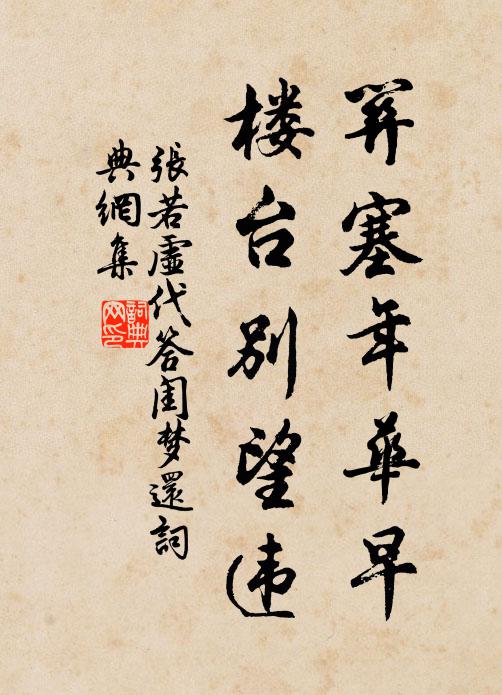 关塞年华早
楼台别望违
張若虛代答闺梦還詞
典網集
詞典网印